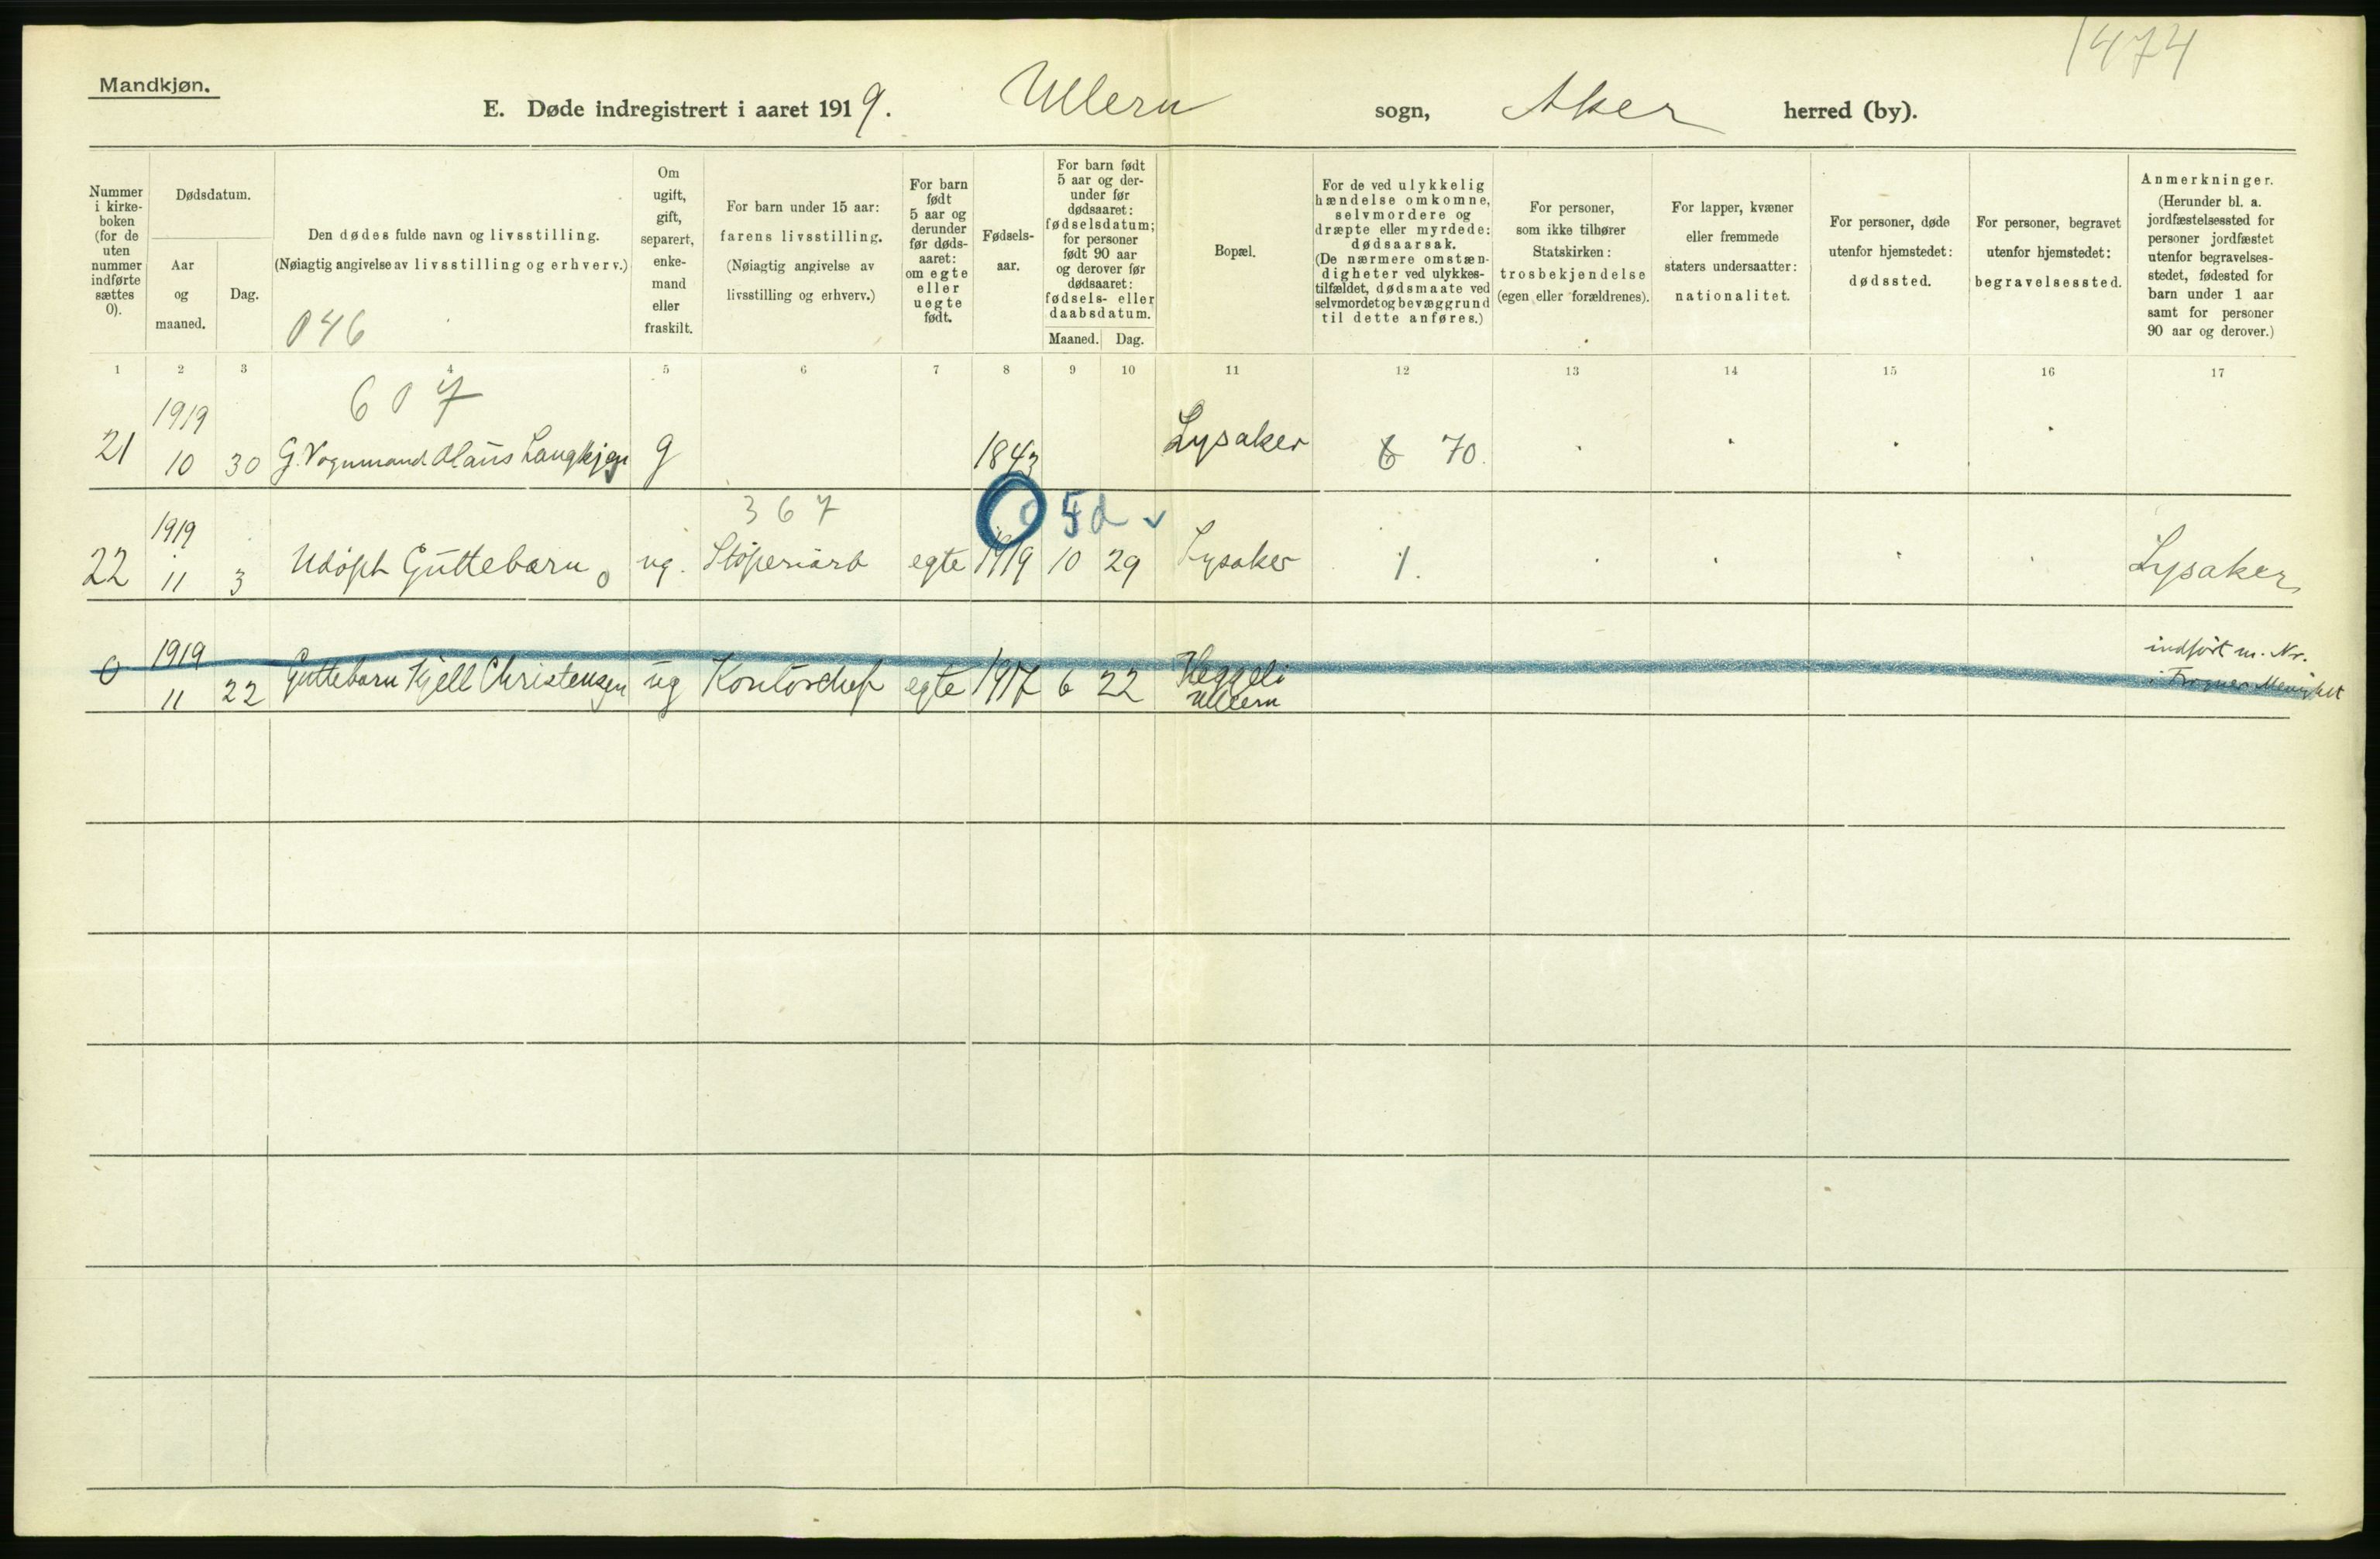 1474
Mandkjøn.
E. Døde indregistrert i aaret 1919. Ullern sogn, Aker herred (by).
Nummer i kirke-boken (for de uten nummer indførte sættes 0).
Dødsdatum.
Aar og maaned.
Dag.
Den dødes fulde navn og livsstilling.
(Nøiagtig angivelse av livsstilling og erhverv.)
046
Om ugift, gift, separert, enke-mand eller fraskilt.
For barn under 15 aar:
farens livsstilling.
(Nøiagtig angivelse av livsstilling og erhverv.)
For barn født 5 aar og derunder før døds-aaret: om egte eller uegte født.
Fødsels-aar.
For barn født 5 aar og der-under før dødsaaret: fødselsdatum; for personer født 90 aar og derover før dødsaaret: fødsels- eller daabsdatum.
Maaned. Dag.
Bopæl.
For de ved ulykkelig hændelse omkomne, selvmordere og dræpte eller myrdede: dødsaarsak. (De nærmere omstæn-digheter ved ulykkes-tilfældet, dødsmaate ved selvmordet og bevæggrund til dette anføres.)
For personer, som ikke tilhører Statskirken: trosbekjendelse (egen eller forældrenes).
For lapper, kvæner eller fremmede staters undersaatter: nationalitet.
For personer, døde utenfor hjemstedet: dødssted.
For personer, begravet utenfor hjemstedet: begravelsessted.
Anmerkninger. (Herunder bl. a. jordfæstelsessted for personer jordfæstet utenfor begravelses-stedet, fødested for barn under 1 aar samt for personer 90 aar og derover.)
1 2 3 4 5 6 7 8 9 10 11 12 13 14 15 16 17
607
21 1919 10 30 G. Vognmand Olaus Langkjen g 1843 Lysaker 6 70.
367 0 5d
22 1919 11 3 Udøpt Guttebarn ug. Støperiarb egte 1919 10 29 Lysaker 1. Lysaker
0 1919 11 22 Guttebarn Kjell Christensen ug Kontorchef egte 1917 6 22 Heggeli Ullern indført m. Nr. i Frogner Menighet